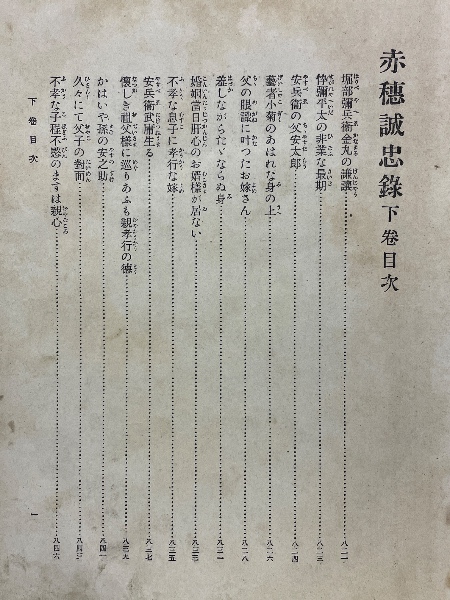 赤穗誠忠錄 下卷目次
堀部彌兵衞金丸の謙讓……八二一
伜彌平太の非業な最期……八二三
安兵衞の父安太郎……八二四
藝者小菊のあはれな身の上……八二六
父の眼識に叶つたお嫁さん……八二八
羞しながらたゞならぬ身……八三一
婚姻當日肝心のお婿樣が居ない……八三三
不孝な息子に孝行な嫁……八三五
安兵衞武庸生る……八三七
懷しき祖父樣に巡りあふも親孝行の德……八三九
かはいや孫の安之助……八四一
久々にて父子の對面……八四三
不孝な子程不愍のますは親心……八四六
下卷目次
一